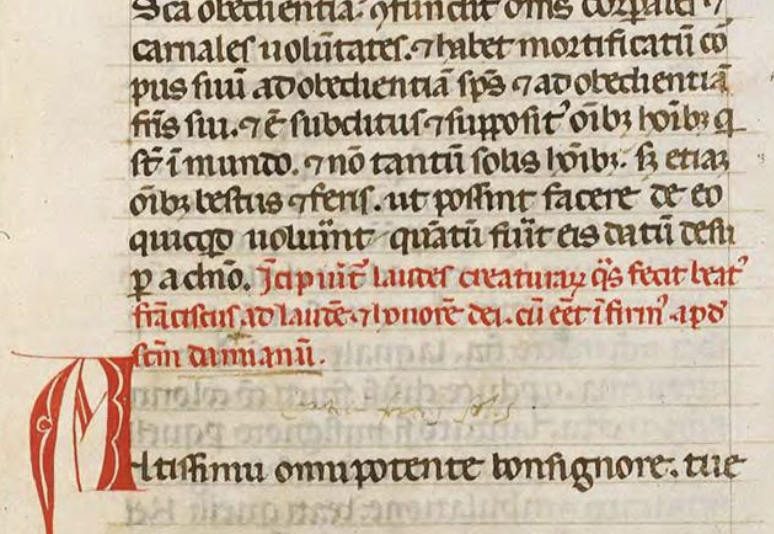 Sca obedientia: ꝯfundit om̄s corꝑales ⁊
carnales uolūtates. ⁊ habet mortificatū cō
pus suū ad obedientiā sp̄s ⁊ ad obedientiā
fr̄is sui. ⁊ ē subditus ⁊ supposit᾿ oībꝫ hoībꝫ q̄
st̄ ī mundo. ⁊ nō tantū solis hoībꝫ. sꝫ etiaꝫ
oībꝫ bestiis ⁊ feris. ut possint facere de eo
quicqd uoluīnt quātū fuīt eis datū desu
ꝑ a dn̄o. Īcipiūt laudes creaturaꝝ q̄s fecit beat᾿
frāciscus ad laudē ⁊ honorē dei. cū eēt ī firm᾿ apd᾿
sc̄m damianū.
Altissimu omnipotente bonsignore. tue